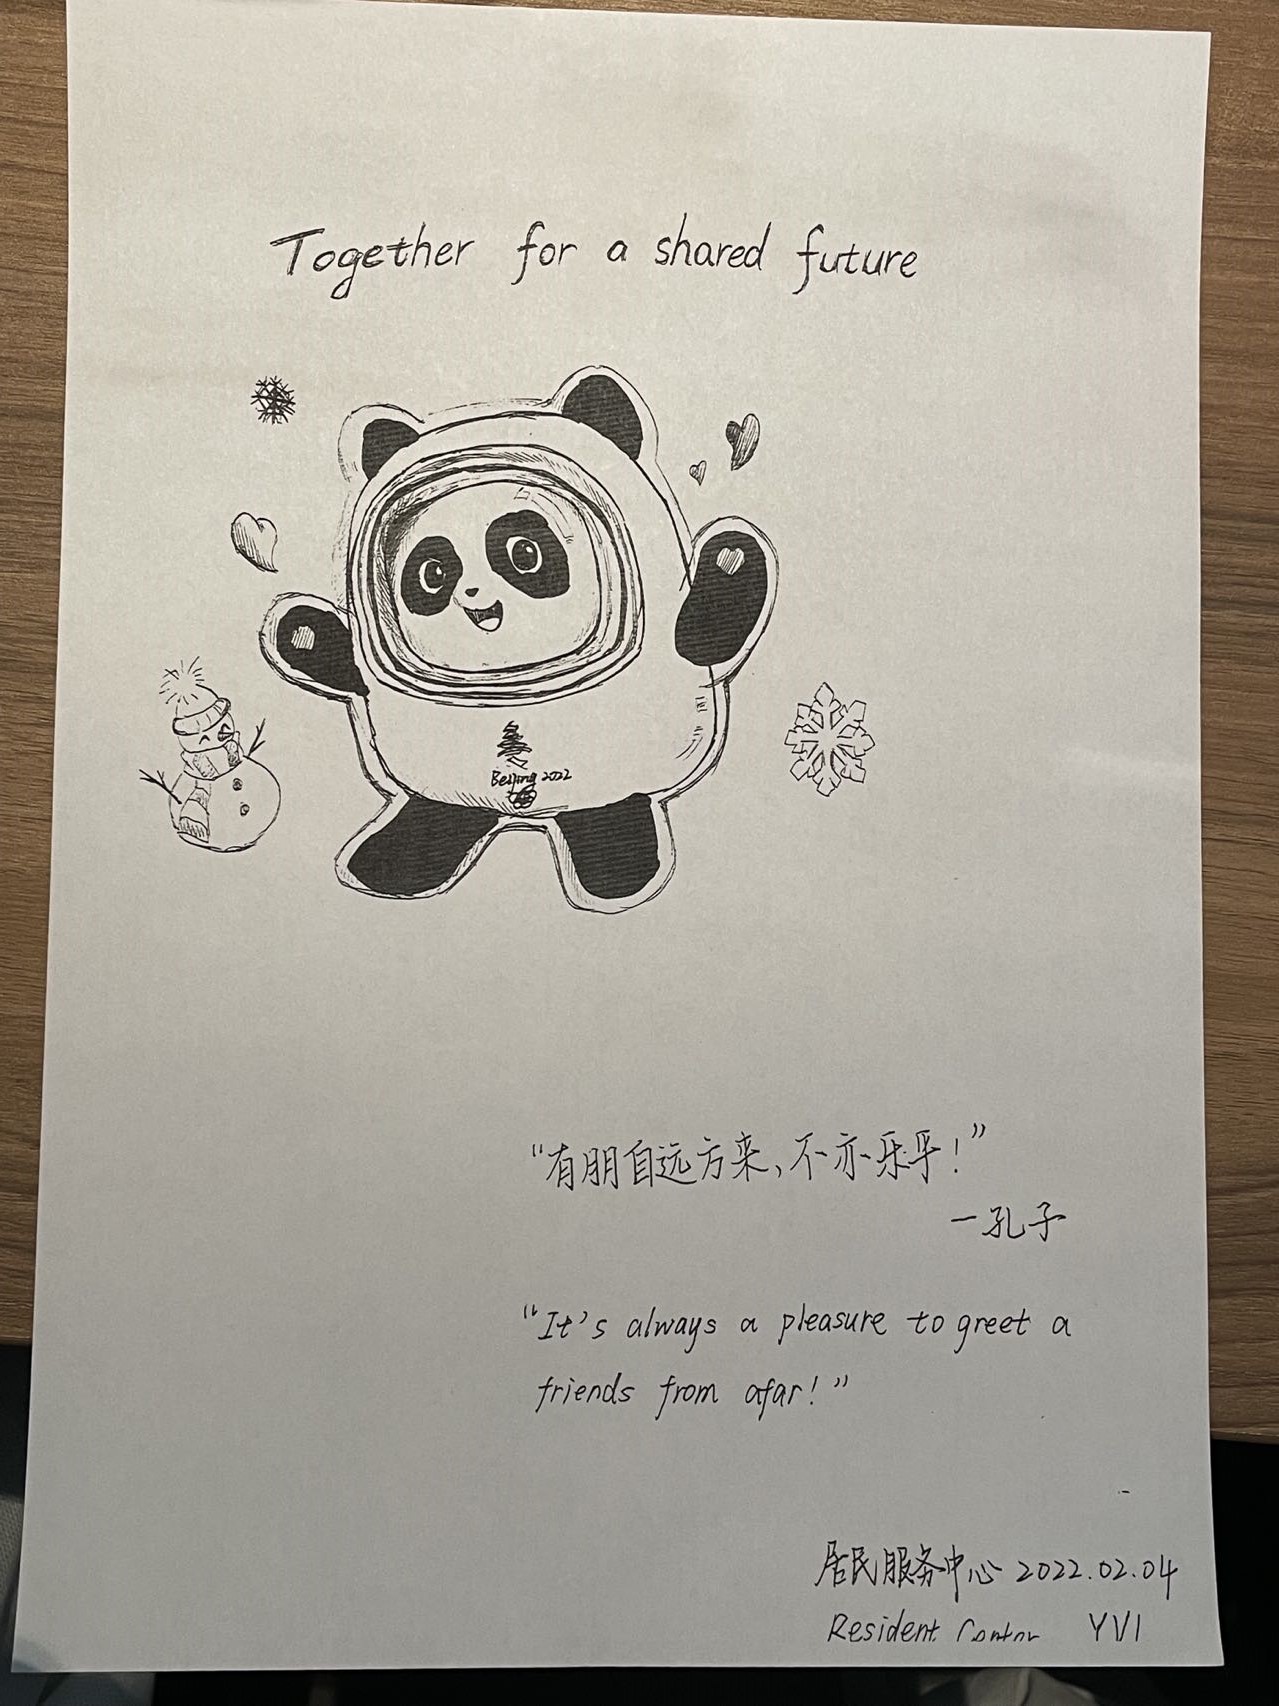 Together for a shared future
Beijing 2022
“有朋自远方来,不亦乐乎!”
一孔子
“It's always a pleasure to greet a
friends from afar!”
居民服务中心 2022.02.04
Resident